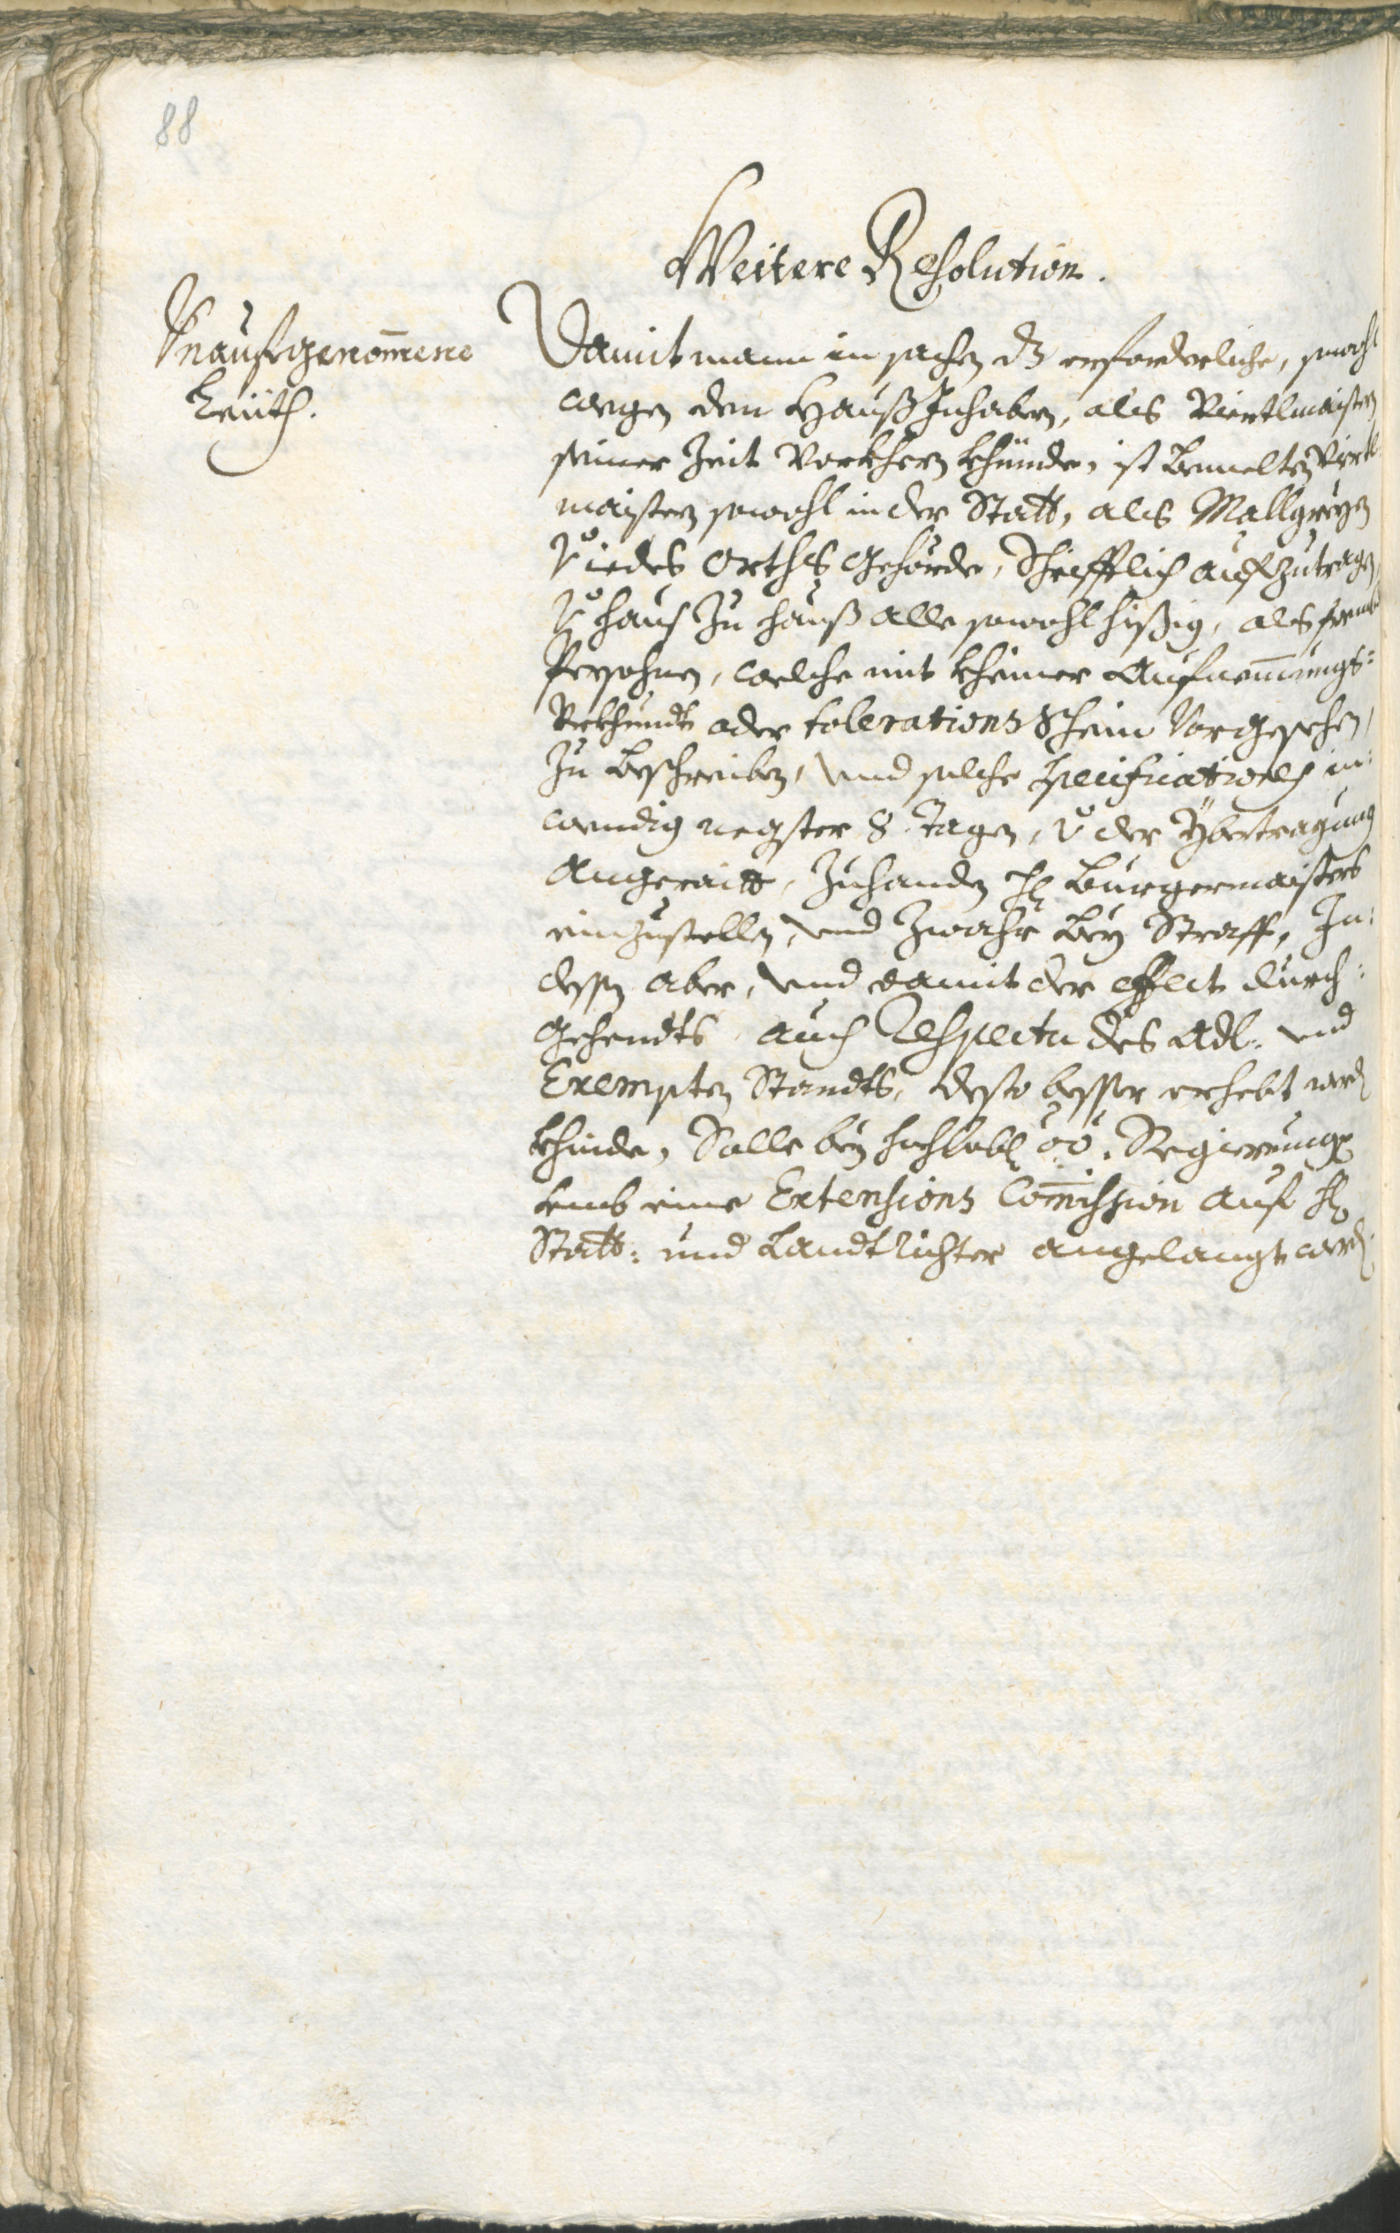 88
Weitere Resolution.
Unaufgenom̅ene
Leüth.
Damit mann in sachen dz erforderliche, sowohl
wegen den Hauß Inhabern, als Viertlmaistern
seiner Zeit Vorkhern khünde, ist bemelten Viertl
maistern sowohl in der Statt, als Mallgreyen
iedes Orths Gehörde, Schrifftlich aufzutragen,
haus Zu hauß alle sowohl hißig, als fremde
Persohnen, welche mit kheiner Aufnem̅ungs=
Vrkhundt oder tolerations Schein Vorgesehen,
Zu beschreiben, und solche specificationes in=
wendig negster 8. Tagen, der Ybertragung
Angeraitt, Zuhanden H Burgermaisters
einzustellen, und Zwahr bey Straff, In=
dessen aber, und damit der effect durch=
Gehendts auch Respectu des Adl: und
Exempten Standts, desto besser erhebt werd
khinde, Solle bey hochlobl oö. Regierung
umb eine Extensions Com̅ission auf H
Statt: und Landtrichter angelangt werd.